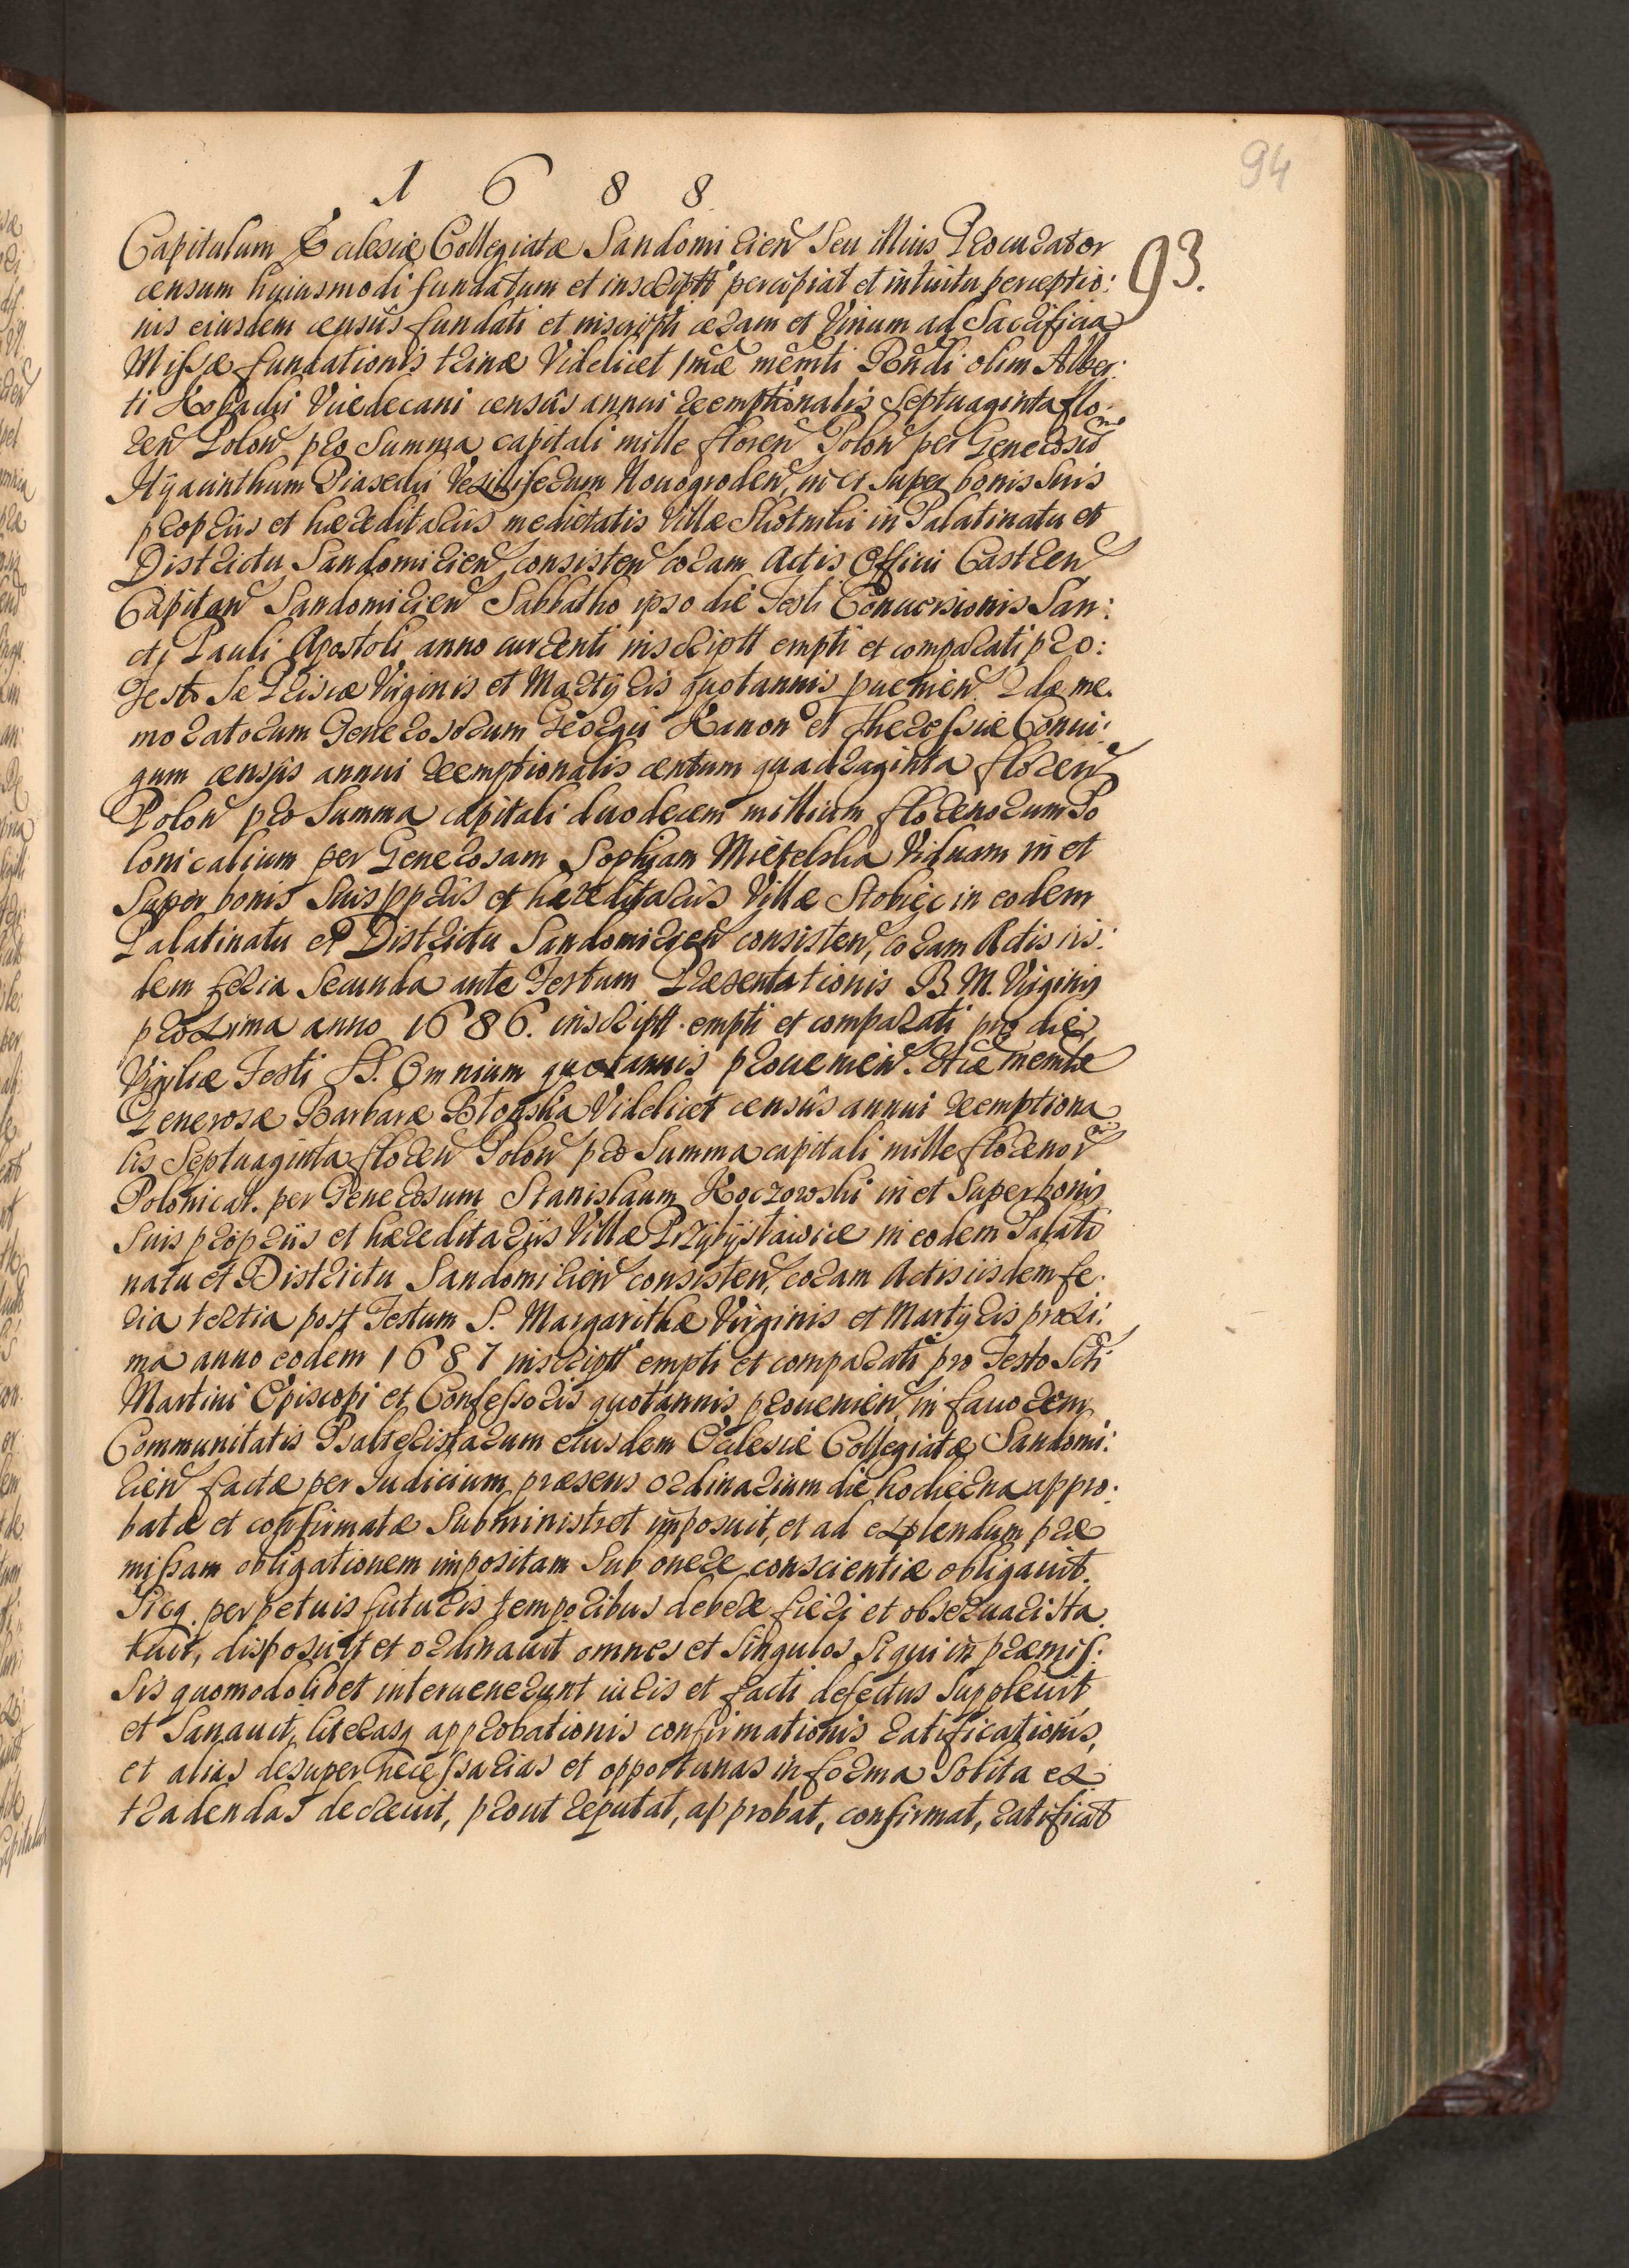 94
1688
93.
Capitulum Ecclesiæ Collegiatæ Sandomirien Seu illius Procurator
censum huiusmodi fundatum et inscriptt percipiat et intuitu perceptio:
nis eiusdem censûs fundati et inscripti ceram et Vinum ad Sacrificia
Missæ fundationis trinæ Videlicet 1mæ memti Rndi olim Alber:
ti Vicedecani censûs annui reemptionalis Septuaginta flo:
ren Polon pro Summa capitali mille floren Polon per Generosum
Hyacinthum Piasecki Vexilliferum Nouogroden, in et Super bonis Suis
proprijs et hæreditarijs medietatis Villæ Skotniki in Palatinatu et
Districtu Sandomirien consisten coram Actis Officii Castren
Capitan Sandomirien Sabbatho ipso die Festi Conuersionis San:
cti Pauli Apostoli anno currenti inscriptt empti et comparati pro:
Festo Sæ Priscæ Virginis et Martyris quotannis puenien. 2dæ me.
moratorum Generosorum Georgii Kanon et Theressiæ Coniu:
gum censûs annui reemptionalis centum quadraginta floren
Polon pro Summa capitali duodecem millium florenorum Po
lonicalium per Generosam Sophiam Viduam in et
Super bonis Suis ppriis et hæreditariis Villæ Stobiec in eodem
Palatinatu et Districtu Sandomirien consisten, coram Actis iis:
dem feria Secunda ante Festum Præsentationis B. M. Virginis
proxima anno 1686. inscriptt. empti et comparati pro die
Vigiliæ Festi SS. Omnium quotannis prouenien. 3tiæ memtæ
Generosæ Barbaræ Błońska Videlicet censûs annui reemptiona
lis Septuaginta floren Polon pro Summa capitali mille florenor
Polonical. per Generosum Stanislaum Koczowski in et Super bonis
Suis propriis et hæreditariis Villæ Przybysławice in eodem Palati
natu et Districtu Sandomirien consisten, coram Actis iisdem fe:
ria tertia post Festum S. Margarithæ Virginis et Martyris proxi:
ma anno eodem 1687 inscriptt empti et comparati pro Festo Scti
Martini Episcopi et Confessoris quotannis prouenien, in fauorem
Communitatis Psalteristarum eiusdem Ecclesiæ Collegiatæ Sandomi:
rien factæ per Iudicium præsens Ordinarium die hodierna appro:
batæ et confirmatæ Subministret imposuit, et ad explendum præ
missam obligationem impositam Sub onere conscientiæ obligauit.
Sicq. perpetuis futuris temporibus debere fieri et obseruari Sta
tuit, disposuit et ordinauit omnes et Singulos Si qui in præmis:
sis quomodolibet interuenerunt iuris et facti defectus Suppleuit
et Sanauit, literasq approbationis confirmationis ratificationis,
et alias desuper necessarias et opportunas in forma Solita ex:
tradendas decreuit, prout reputat, approbat, confirmat, ratificat